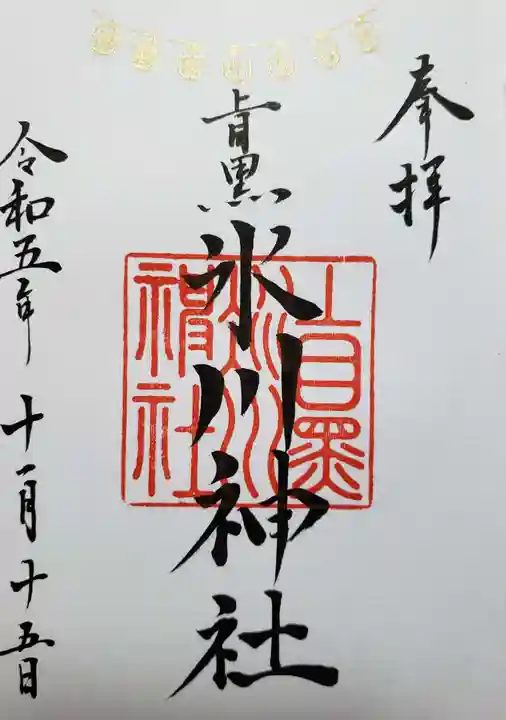 奉拝
上目黒
氷川神社
上目黒
氷川
神社
令和五年
十一月十五日